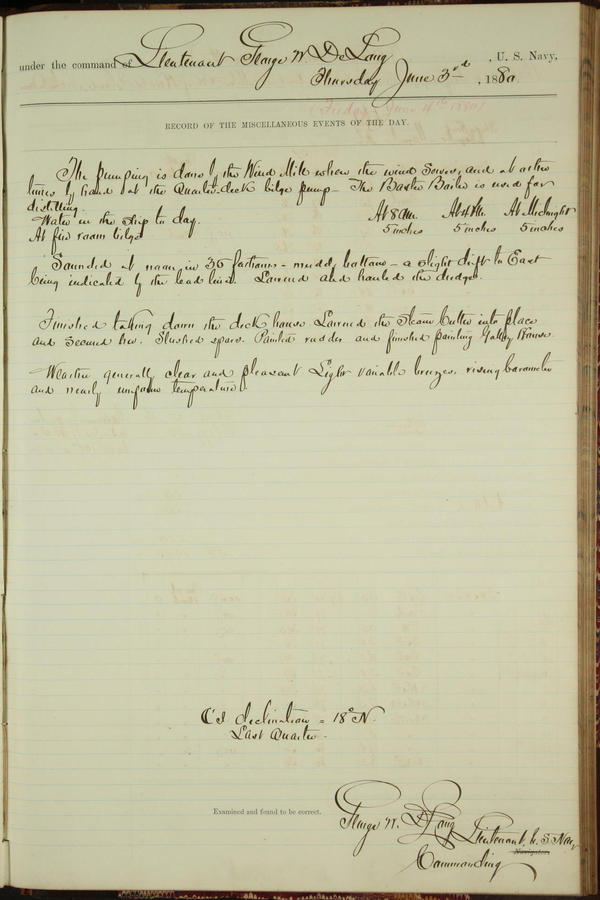 under the command of Lieutenant George W De Long, U. S. Navy,
Thursday June 3rd, 1880
RECORD OF THE MISCELLANEOUS EVENTS OF THE DAY.
The pumping is done by the Wind Mill when the wind serves, and at other
times by hand at the Quarter-deck bilge pump - The Baxter Boiler is used for
distilling.
Water in the ship to day. At 8 a.m. At 4 P.M. At Midnight
At fire room bilge 5 inches 5 inches 5 inches
Sounded at noon in 36 fathoms - muddy bottom - a slight drift to East
being indicated by the lead line. Lowered and hauled the dredge.
Finished taking down the deck house. Lowered the Steam Cutter into place
and secured her. Slushed spars. Painted rudder and finished painting Galley House.
Weather generally clear and pleasant Light variable breezes, rising barometer
and nearly uniform temperature.
declination = 18° N.
Last Quarter.
Examined and found to be correct.
George W. De Long Lieutenant U.S. Navy
Navigator.
Commanding